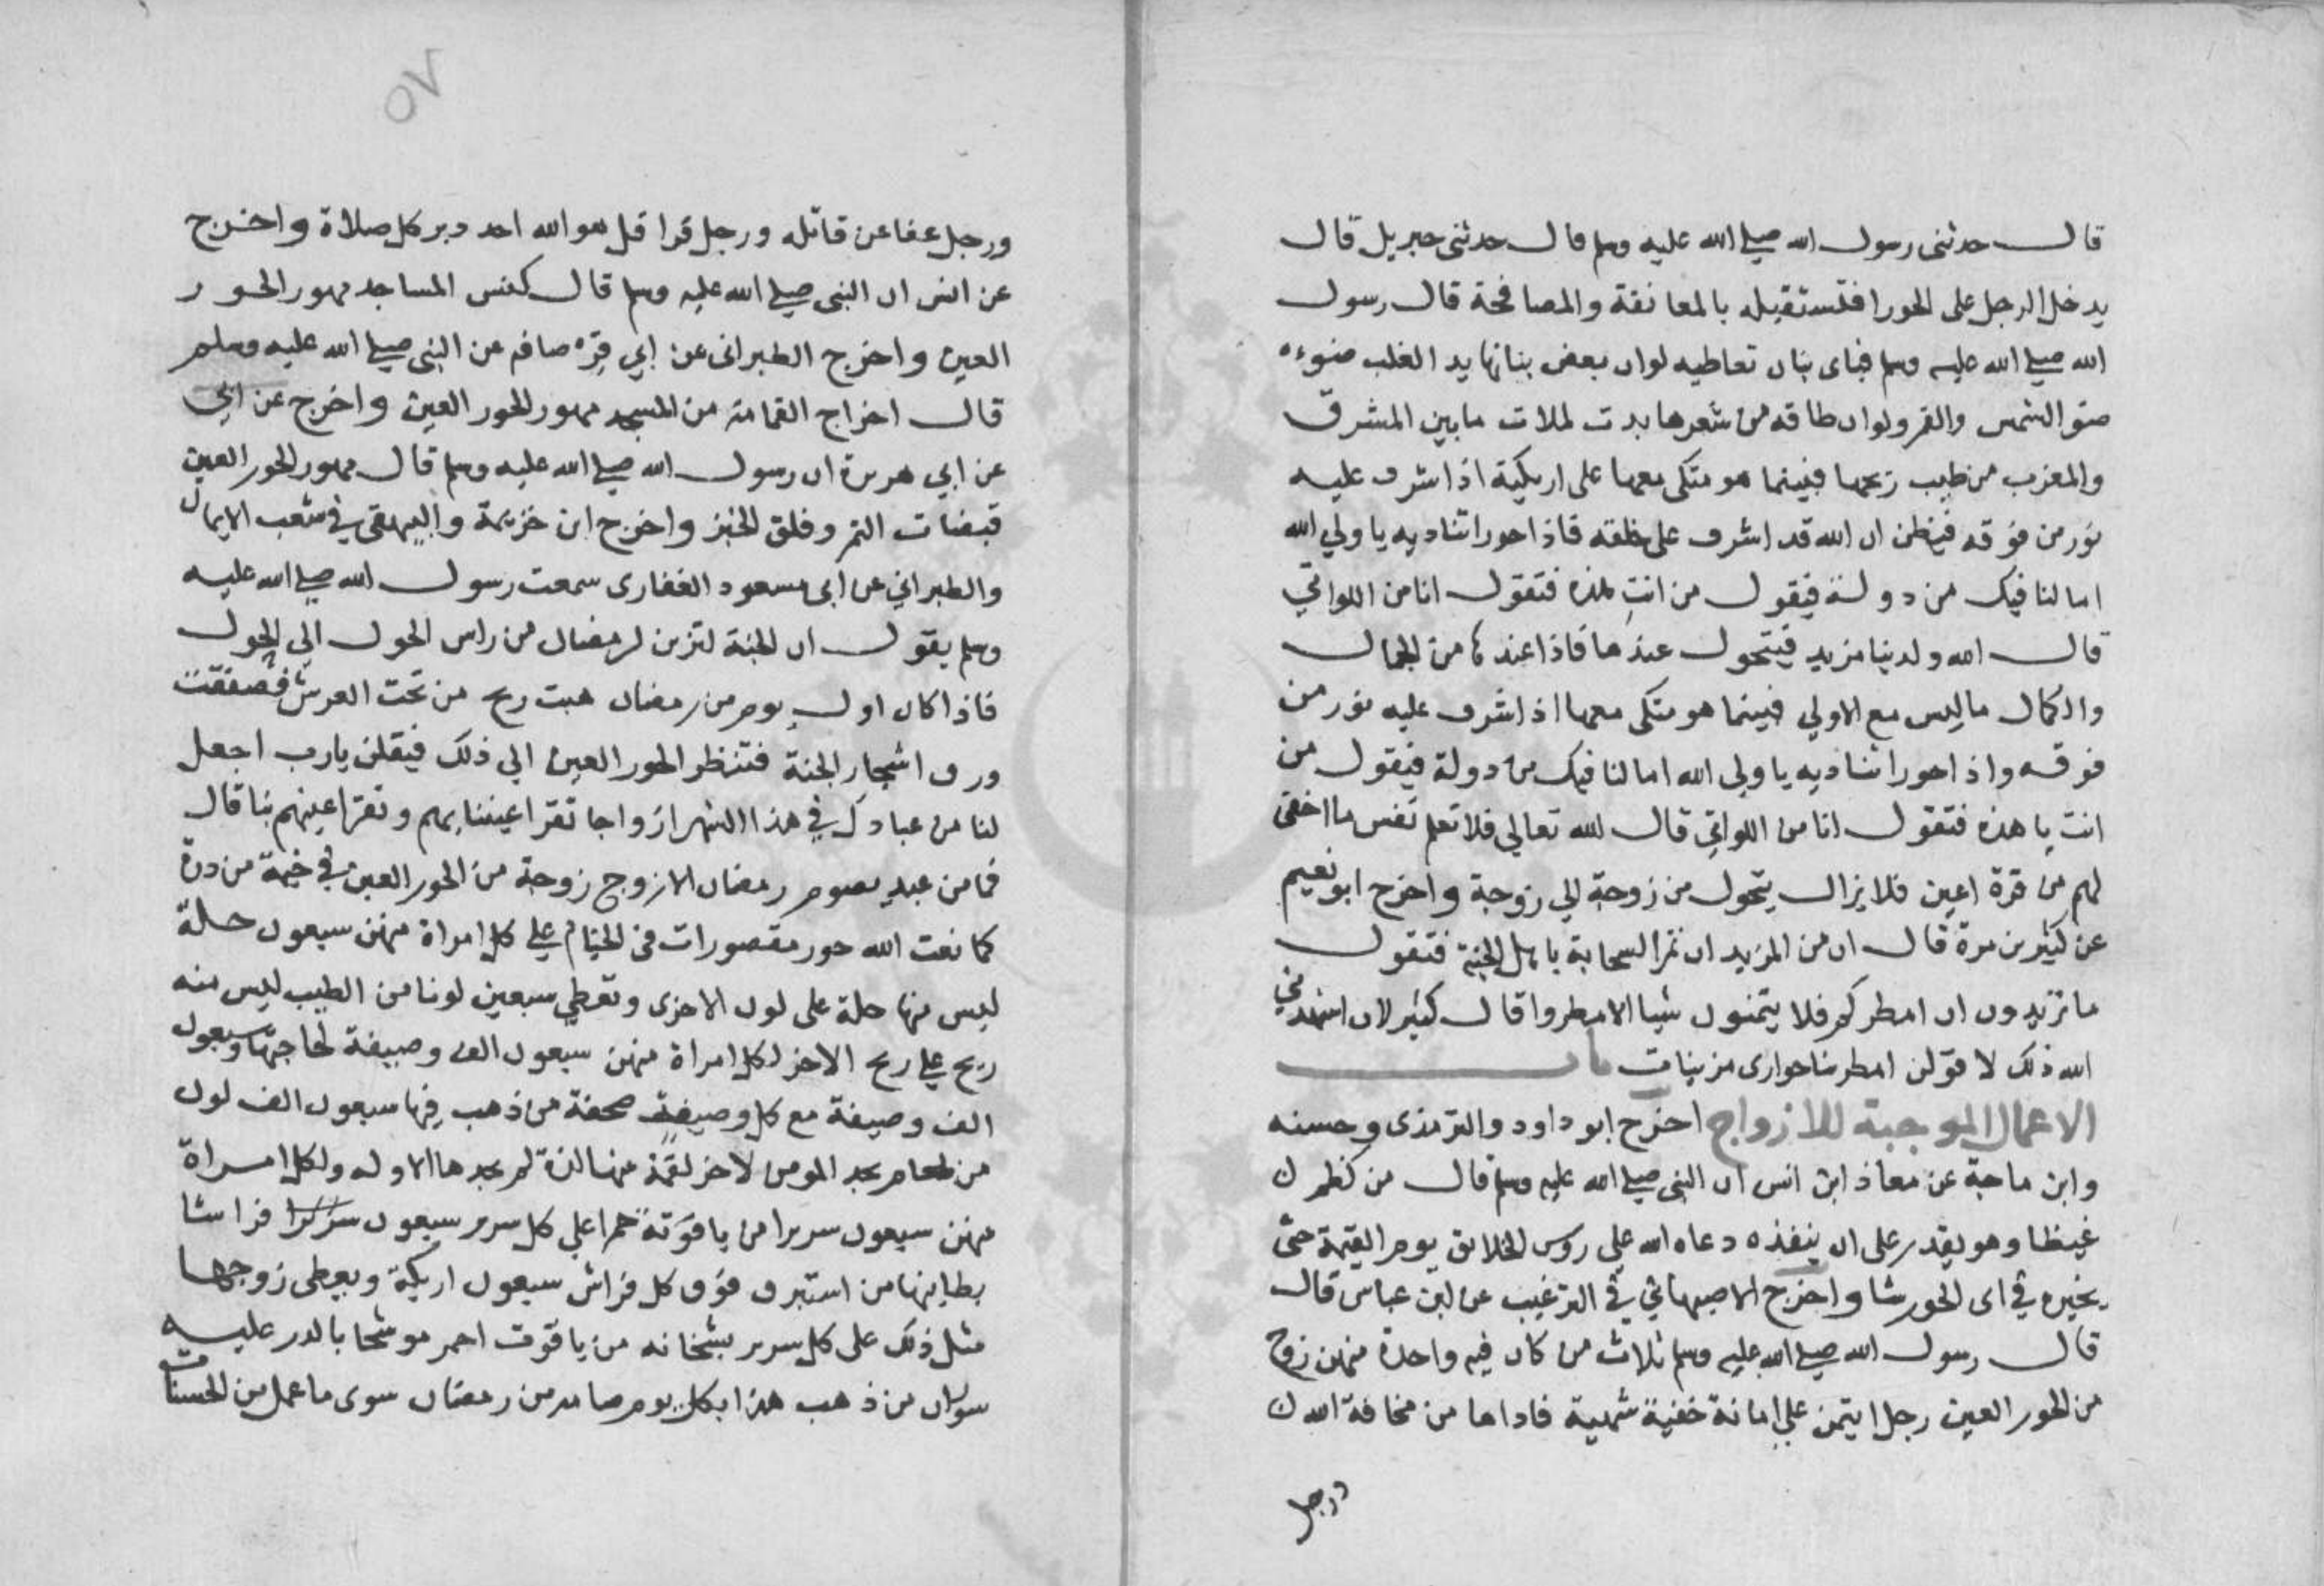 قال حدثنى رسول الله صلى الله عليه وسلم قال حدثنى جبريل قال
يدخل الرجل على الحورا فتستقبله بالمعانقة والمصافحة قال رسول
الله صلى الله عليه وسلم فباى بنان تعاطيه لوان بعض بنانها بدا لغلب ضوءه
ضو الشمس والقمر ولوان طاقه من شعرها بدت لملات مابين المشرق
والمغرب من طيب ريحها فبينما هو متكى معها على اريكية اذا شرف عليه
نور من فوقه فيظن ان الله قد اشرف على خلقه فاذا حورا تناديه يا ولي الله
اما لنا فيك من دولة فيقول من انت هذه فتقول انا من اللواتي
قال الله ولدينا مزيد فيتحول عندها فاذا عندها من الجمال
والكمال ماليس مع الاولي فبينما هو متكى معها اذ اشرف عليه نور من
فوقه واذا حورا تناديه يا ولى الله اما لنا فيك من دولة فيقول من
انت يا هذه فتقول انا من اللواتي قال الله تعالي فلا تعلم نفس ما اخفى
لهم من قرة اعين فلا يزال يتحول من زوجة الي زوجة واخرج ابو نعيم
عن كثير بن مرة قال ان من المزيد ان تمر السحابة باهل الجنة فتقول
ما تريدون ان امطركم فلا يتمنون شيا الا مطروا قال كثير لان اشهدني
الله ذلك لا قولن امطرينا حوارى مزينات باب
الاعمال الموجبة للازواج اخرج ابو داود والترمذى وحسنه
وابن ماجة عن معاذ ابن انس ان النبى صلى الله عليه وسلم قال من كظم
غيظا وهو يقدر على ان ينفذه دعاه الله على روس الخلايق يوم القيمة حتى
يخيره في اى الحور شا واخرج الاصبهاني في الترغيب عن ابن عباس قال
قال رسول الله صلى الله عليه وسلم ثلاث من كان فيه واحدة منهن زوج
من الحور العين رجل ايتمن علي امانة خفية شهية فاداها من مخافة الله
ورجل
٥٧
ورجل عفا عن قاتله ورجل قرا قل هو الله احد دبر كل صلاة واخرج
عن انس ان النبى صلى الله عليه وسلم قال كنس المساجد مهور الحور
العين واخرج الطبرانى عن ابي قرصافه عن النبى صلى الله عليه وسلم
قال اخراج القمامة من المسجد مهور الحور العين واخرج عن ابي
عن ابي هريرة ان رسول الله صلى الله عليه وسلم قال مهور الحور العين
قبضات التمر وفلق الخبز واخرج ابن خزيمة والبيهقى في شعب الايمان
والطبراني عن ابى مسعود الغفارى سمعت رسول الله صلى الله عليه
وسلم يقول ان الجنة لتزين لرمضان من راس الحول الى الحول
فاذا كان اول يوم من رمضان هبت ريح من تحت العرش فصفقت
ورق اشجار الجنة فتنظر الحور العين الي ذلك فيقلن يارب اجعل
لنا من عبادك في هذا الشهر ازواجا تقر اعيننا بهم وتقر اعينهم بنا قال
فما من عبد يصوم رمضان الا زوج زوجة من الحور العين في خيمة من درة
كما نعت الله حور مقصورات فى الخيام علي كل امراة منهن سبعون حلة
ليس منها حلة على لون الاخرى وتعطي سبعين لونا من الطيب ليس منه
ريح علي ريح الاخر لكل امراة منهن سبعون الف وصيفة لحاجتها وسبعون
الف وصيفة مع كل وصيفة صحفة من ذهب فيها سبعون الف لون
من طعام يجد المومن لاخر لقمة منها لذة لم يجدها الاوله ولكل امراة
منهن سبعون سريرا من ياقوتة حمرا علي كل سرير سبعون سريرا فراشا
بطاينها من استبرق فوق كل فراش سبعون اريكة ويعطى زوجها
مثل ذلك على كل سرير بشخانه من ياقوت احمر موشحا بالدر عليه
سواران من ذهب هذا بكل يوم صامه من رمضان سوى ما عمل من الحسنات